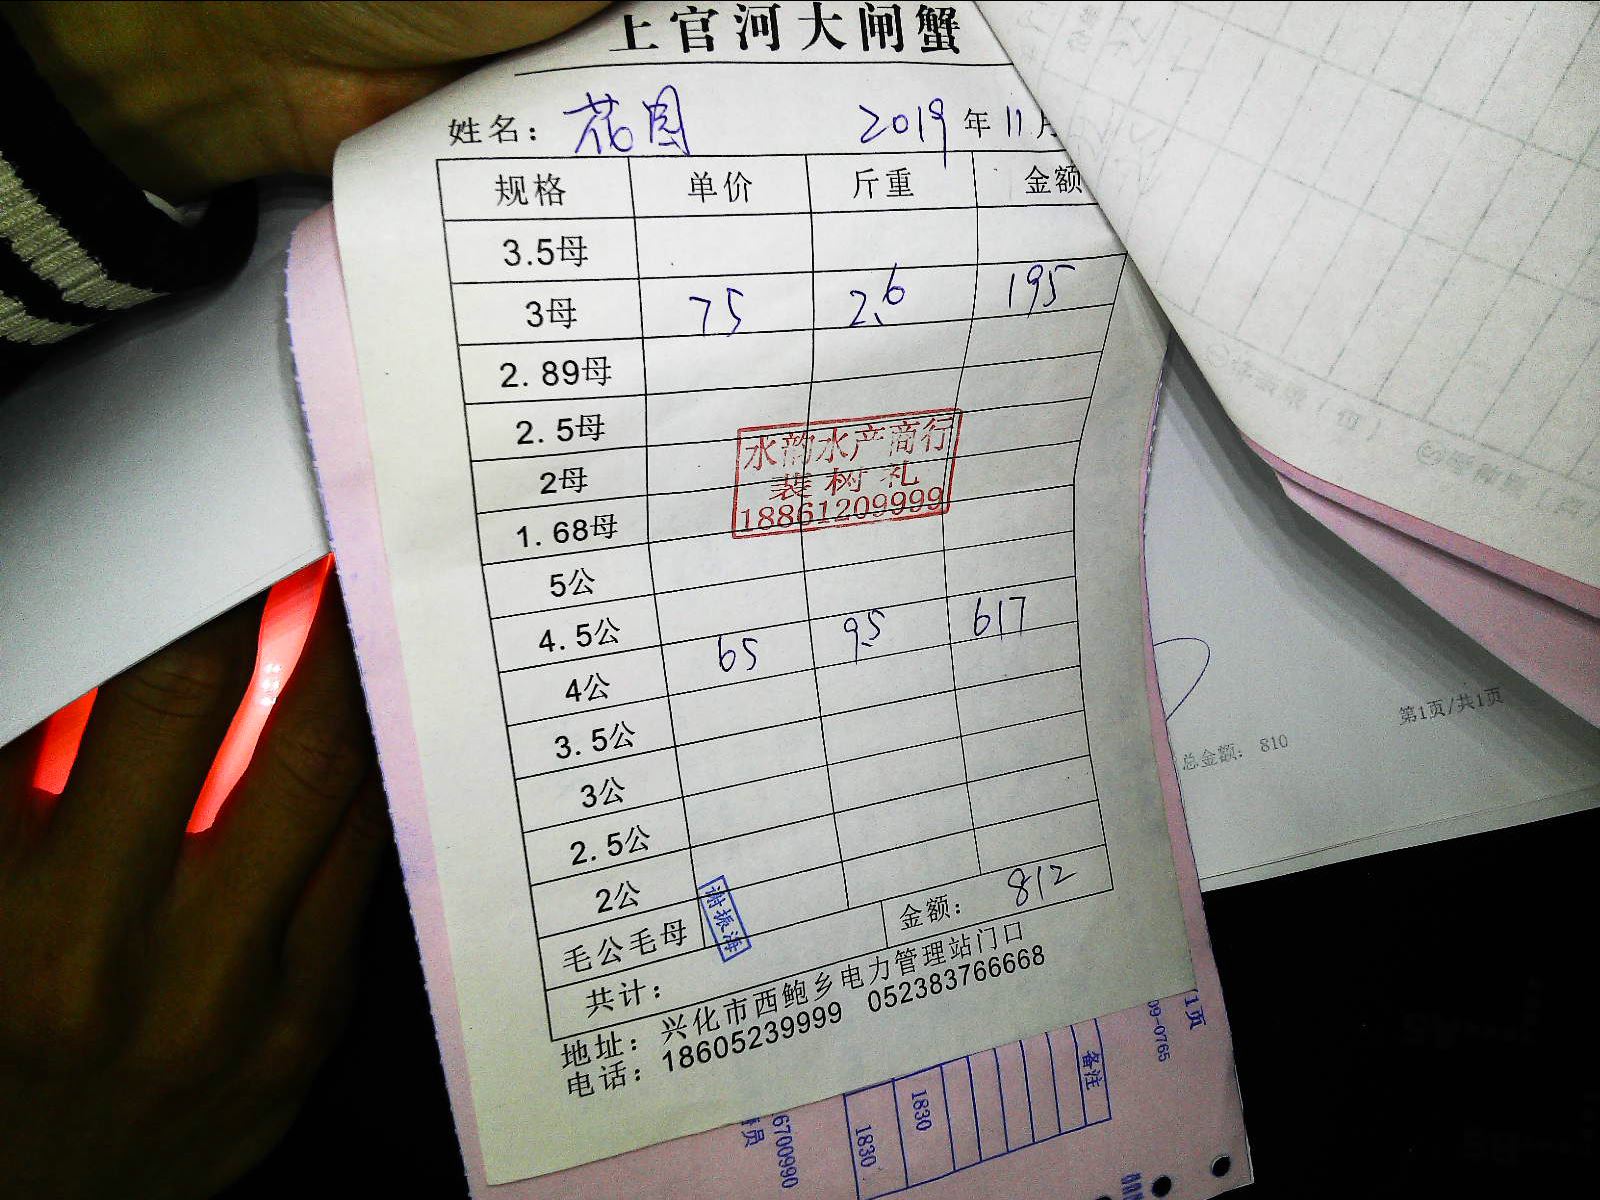 上官河大闸蟹
姓名： 花园 2019 年 11 月
规格 单价 斤重 金额
3.5母
3母 75 2.6 195
2.89母
2.5母
2母
1.68母
5公
4.5公
4公 65 9.5 617
3.5公
3公
2.5公
2公
毛公毛母
共计： 金额： 812
地址： 兴化市西鲍乡电力管理站门口
电话： 18605239999 052383766668
水韵水产商行
裴树礼
18861209999
谢振海
第1页/共1页
总金额： 810
1页
09-0765
备注
1830
1830
6700990
员